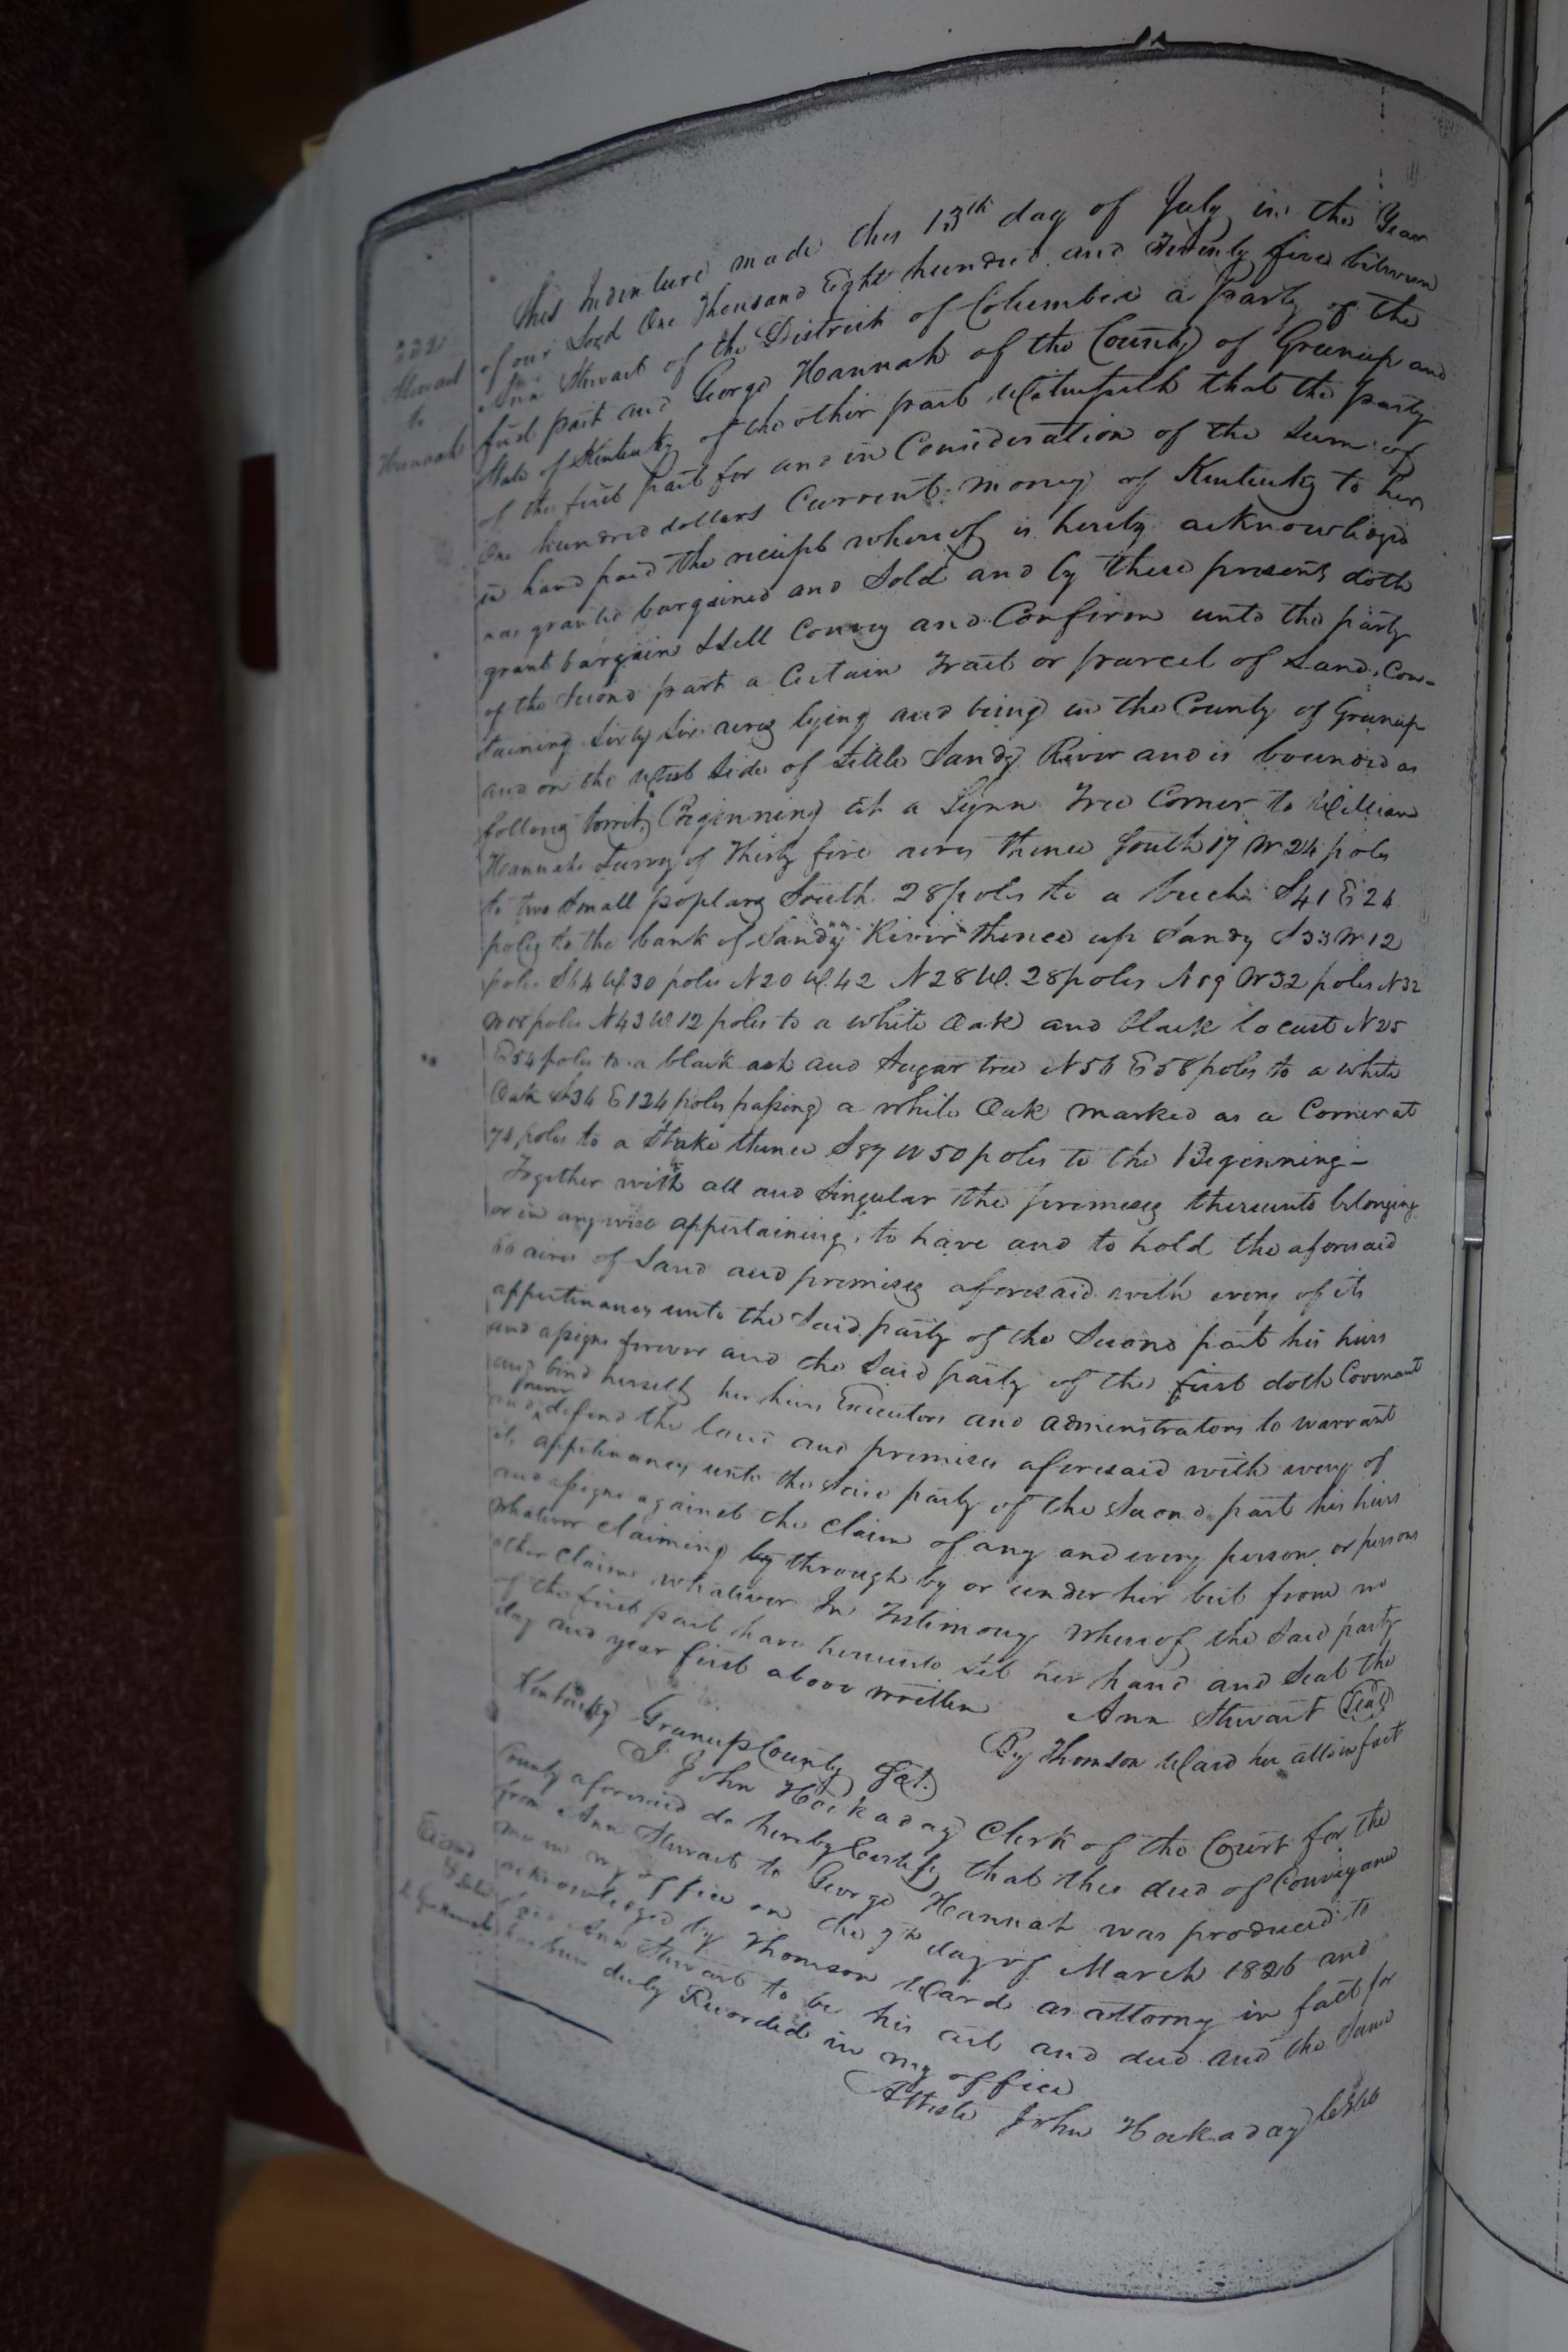 This Indenture made this 13th day of July in the Year
of our Lord One Thousand Eight hundred and Twenty five between
Ann Stewart of the District of Columbia a party of the
first part and George Hannah of the County of Greenup and
State of Kentucky of the other part Witnesseth that the party
of the first part for and in Consideration of the Sum of
One hundred dollars Current money of Kentucky to her
in hand paid the receipt whereof is hereby acknowledged
has granted bargained and Sold and by these presents doth
grant bargain Sell Convey and Confirm unto the party
of the Second part a Certain Tract or parcel of Land, Con-
taining Sixty Six acres lying and being in the County of Greenup
and on the West Side of Little Sandy River and is bounded as
follong towit, Beginning at a Lynn Tree Corner to William
Hannahs Survey of Thirty five acres thence South 17 W 24 poles
to two Small poplars South 28 poles to a beech S41 E 24
poles to the bank of Sandy River thence up Sandy S33 W 12
poles S64 W. 30 poles N20 W. 42 N28 W. 28 poles N59 W 32 poles N32
W poles N43 W 12 poles to a white Oak and black locust N25
E 54 poles to a black ash and Sugar tree N56 E 58 poles to a white
Oak S34 E 124 poles passing a white Oak marked as a Corner at
74 poles to a Stake thence S87 W 50 poles to the Beginning -
Together with all and Singular the premises thereunto belonging
or in any wise appertaining, to have and to hold the aforesaid
66 acres of Land and premises aforesaid with every of its
appertinances unto the Said party of the Second part his heirs
and assigns forever and the Said party of the first doth Covenant
and bind herself her heirs Executors and administrators to warrant
and forever defend the land and premises aforesaid with every of
its appertinances unto the Said party of the Second part his heirs
and assigns against the Claim of any and every person or persons
whatever claiming by through by or under her but from no
other Claim whatever In Testimony whereof the Said party
of the first part have hereunto Set her hand and Seal the
day and year first above written
Ann Stewart Seal
By Thomson Ward her atto in fact
Kentucky Greenup County Sct.
I John Hockaday Clerk of the Court for the
County aforesaid do hereby Certify that this deed of Conveyance
from Ann Stewart to George Hannah was produced to
me in my office on the 7th day of March 1826 and
acknowledged by Thomson Ward as attorny in fact for
Said Ann Stewart to be his act and deed and the Same
has been duly Recorded in my office
Atteste John Hockaday
Stewart
to
Hannah